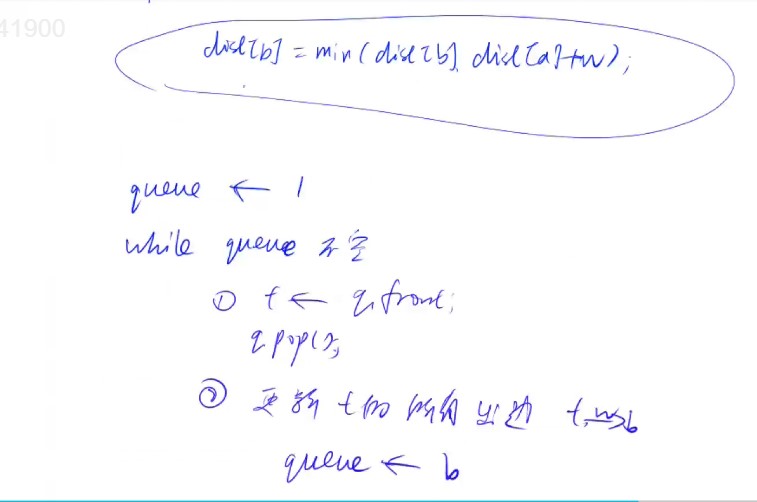 41900
dist[b] = min(dist[b], dist[a]+w);
queue ← 1
while queue 不空
① t ← q.front;
q.pop();
② 更新 t 的所有出边 t →w b
queue ← b